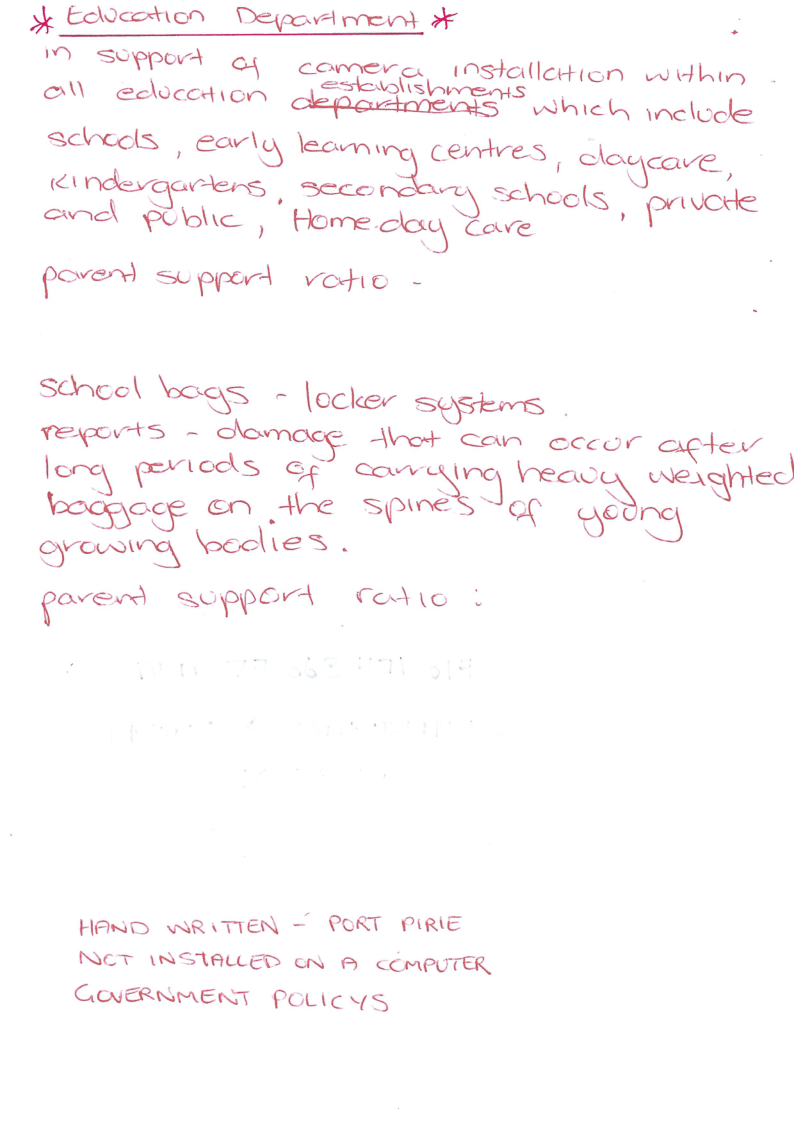 * Education Department *
in support of camera installation within
all education departments establishments which include
schools, early learning centres, daycare,
Kindergartens, secondary schools, private
and public, Home day care
parent support ratio -
school bags - locker systems.
reports - damage that can occur after
long periods of carrying heavy weighted
baggage on the spines of young
growing bodies.
parent support ratio :
HAND WRITTEN - PORT PIRIE
NOT INSTALLED ON A COMPUTER
GOVERNMENT POLICYS